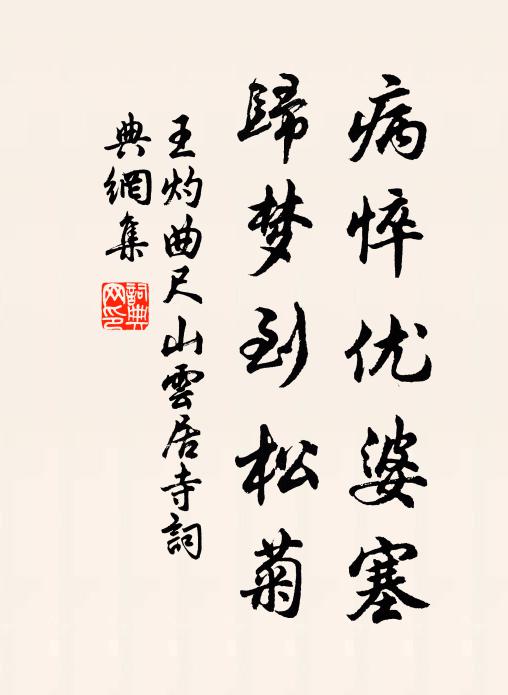 病悴优婆塞
歸梦到松菊
王灼曲尺山雲居寺詞
典網集
詞典网印